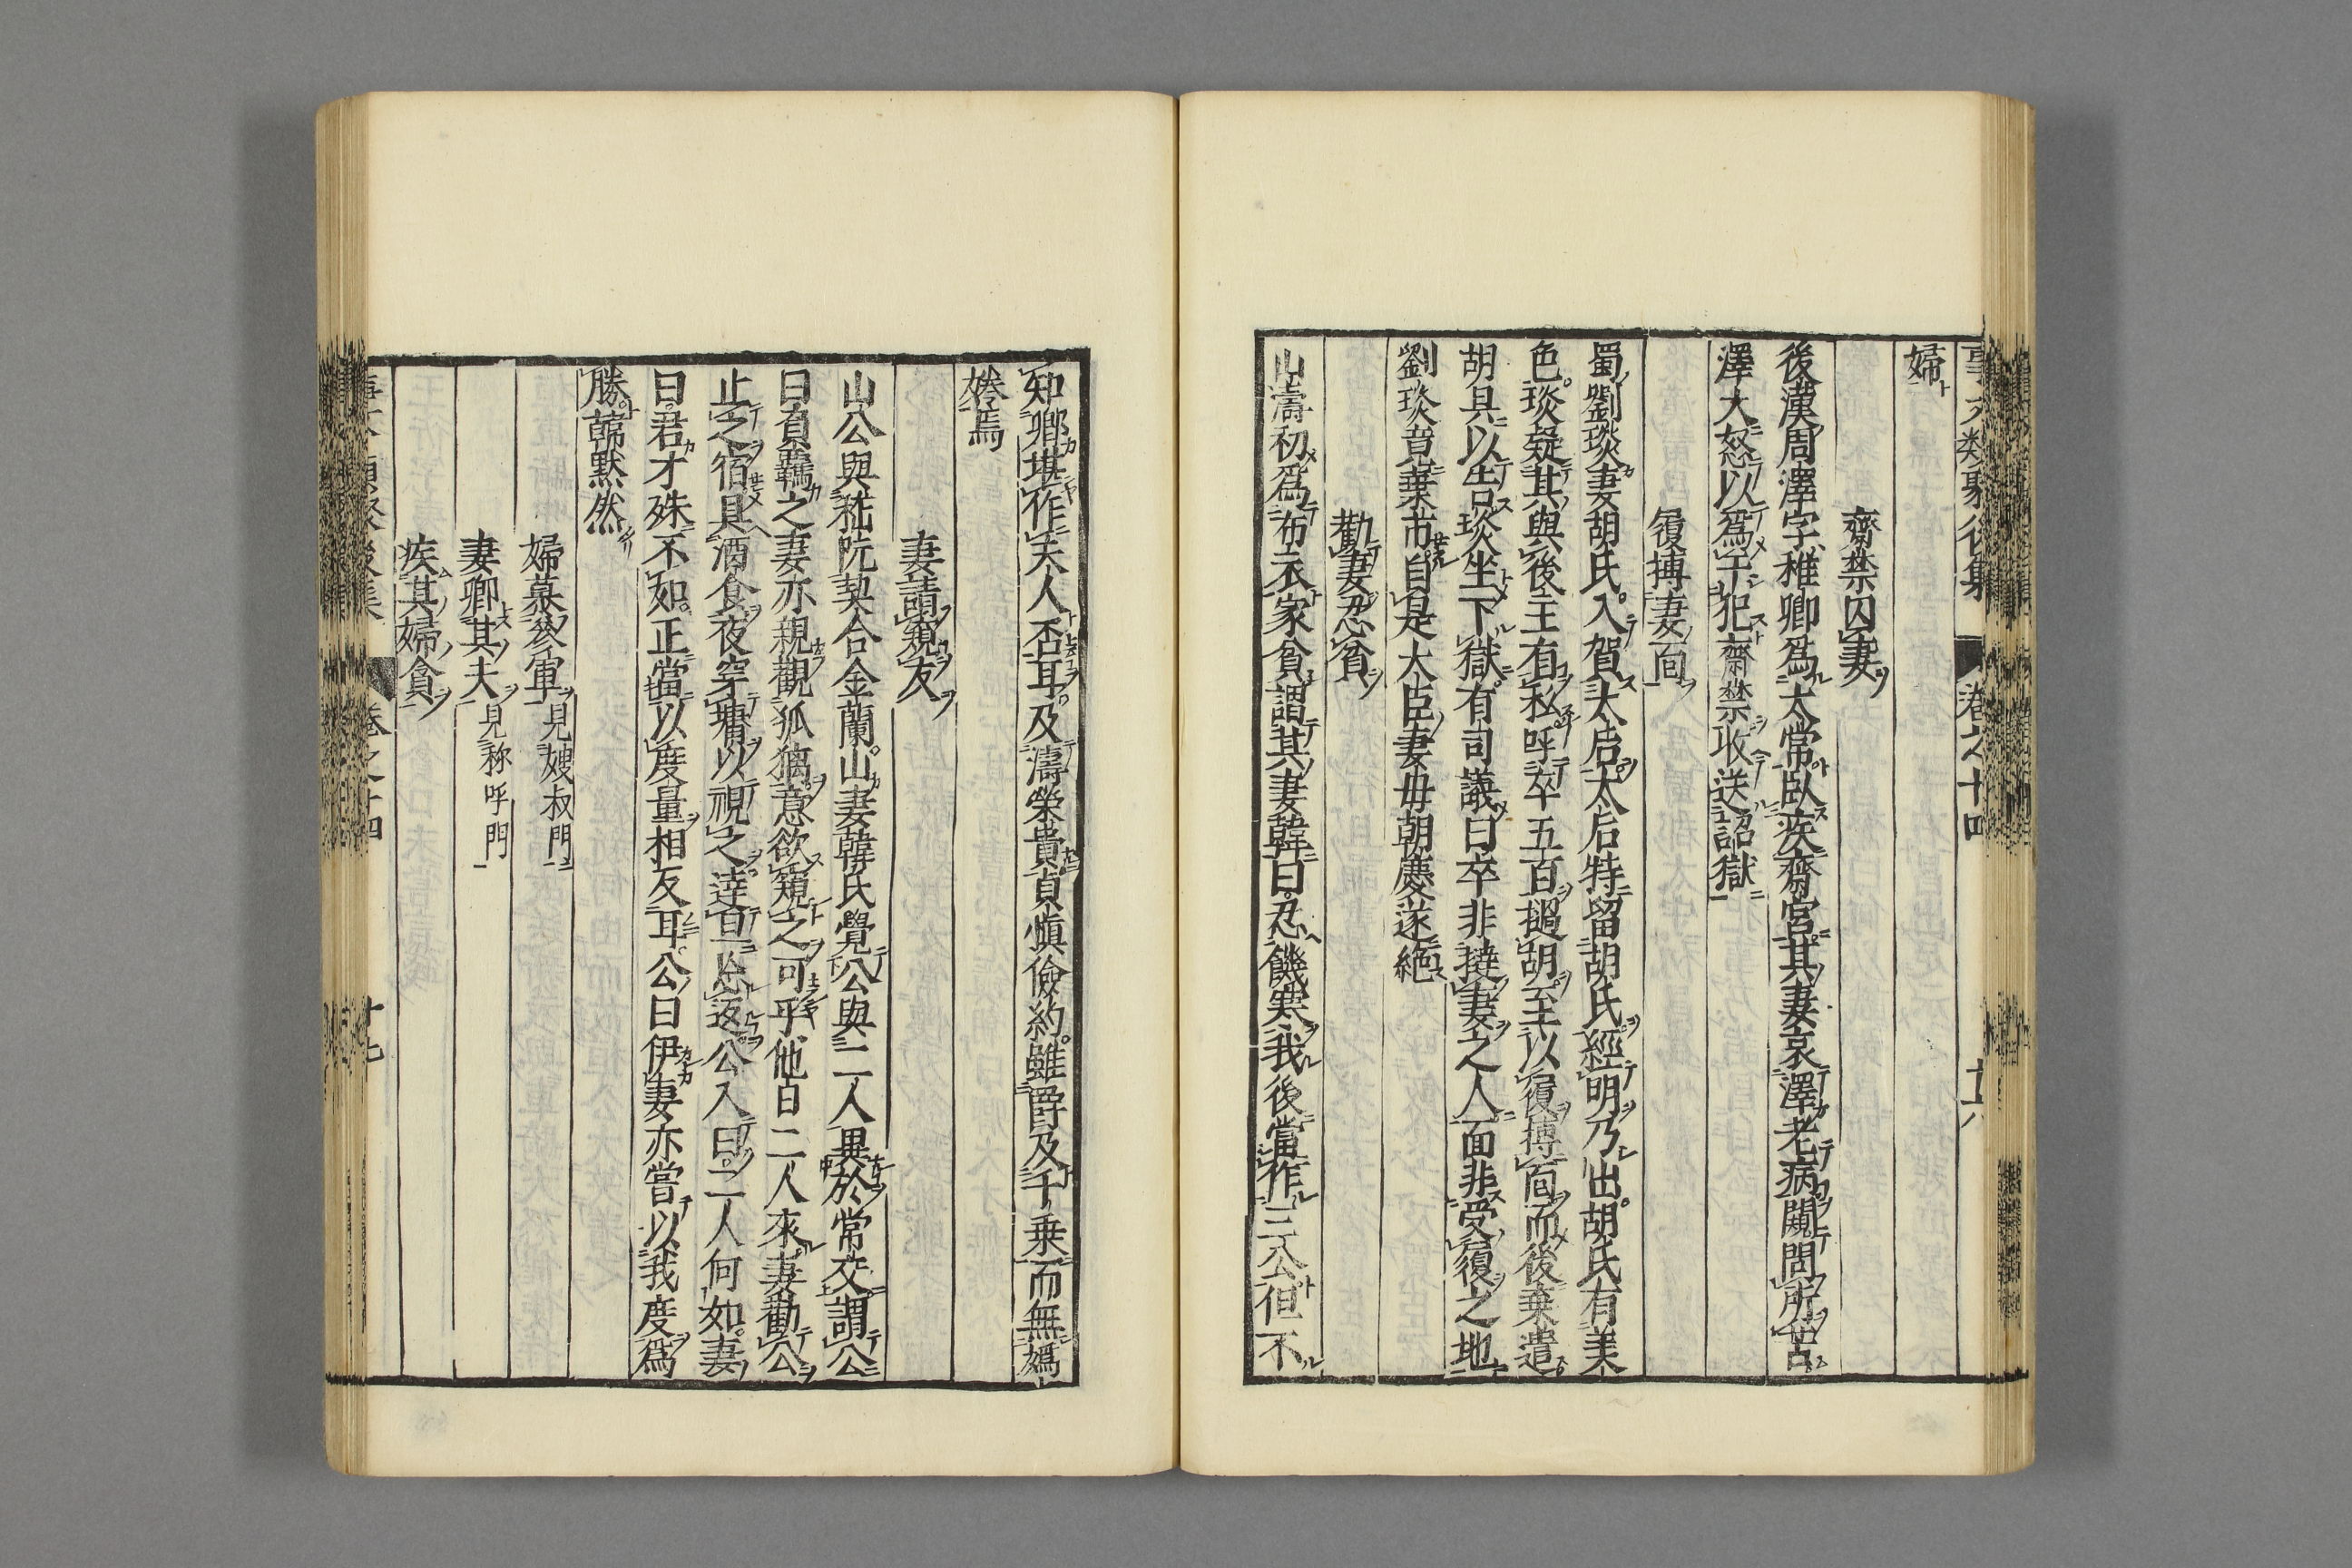 事文類聚後集 卷之十四
婦
齋禁囚妻
後漢周澤字稚卿爲太常臥疾齋宮其妻哀澤老病闚問所苦
澤大怒以爲干犯齋禁收送詔獄
履搏妻面
蜀劉琰妻胡氏入賀太后太后特留胡氏經明乃出胡氏有美
色琰疑其與後主有私呼卒五百撾胡至以履搏面而後棄遣
胡具以告琰坐下獄有司議曰卒非撻妻之人面非受履之地
劉琰竟棄市自是大臣妻毋朝慶遂絕
勸妻忍貧
山濤初爲布衣家貧謂其妻韓曰忍饑寒我後當作三公但不
知卿堪作夫人否耳及濤榮貴貞愼儉約雖爵及千乗而無嬀
媵焉
妻請窺友
山公與嵇阮契合金蘭山妻韓氏覺公與二人異於常交謂公
曰負羈之妻亦親觀狐狸意欲窺之可乎他日二人來妻勸公
止之宿具酒食夜穿墉以視之達旦忘返公入曰二人何如妻
曰君才殊不如正當以度量相友耳公曰伊妻亦嘗以我度爲
勝韓默然
婦慕參軍見嫂叔門
妻卿其夫見称呼門
疾其婦貪
卷之十四 十七